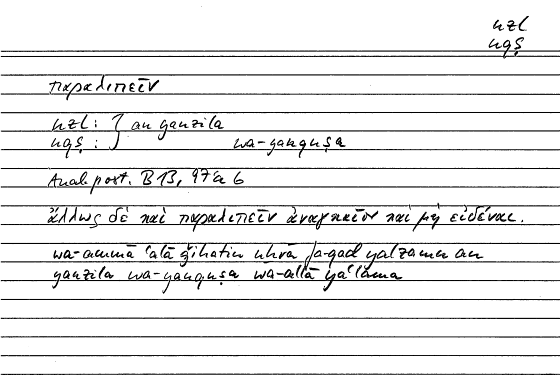 nzl
nqṣ
παραλιπεῖν
nzl : } an yanzila
nqṣ : } wa-yanquṣa
Anal. post. B 13, 97a 6
ἄλλως δὲ καὶ παραλιπεῖν ἀναγκαῖον καὶ μὴ εἰδέναι.
wa-ammā ʿalā ǧihatin uḫrā fa-qad yalzamu an
yanzila wa-yanquṣa wa-allā yaʿlama